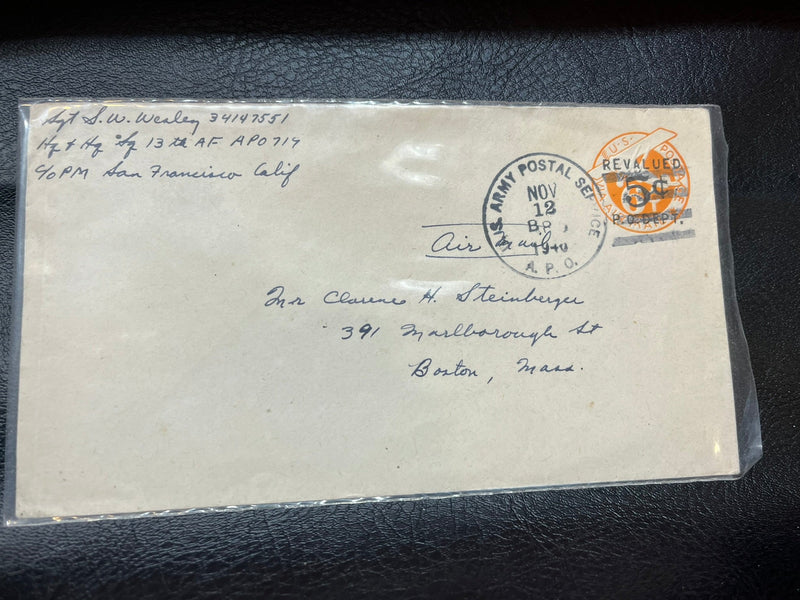 Sgt S. W. Wesley 34147551
Hq & Hq Sq 13th AF APO 719
c/o PM San Francisco Calif
U.S. POSTAGE
REVALUED
5¢
P.O. DEPT.
U.S. ARMY POSTAL SERVICE
NOV
12
A.P.O.
Air Mail
Mr Clarence H. Steinberger
391 Marlborough St
Boston, Mass.